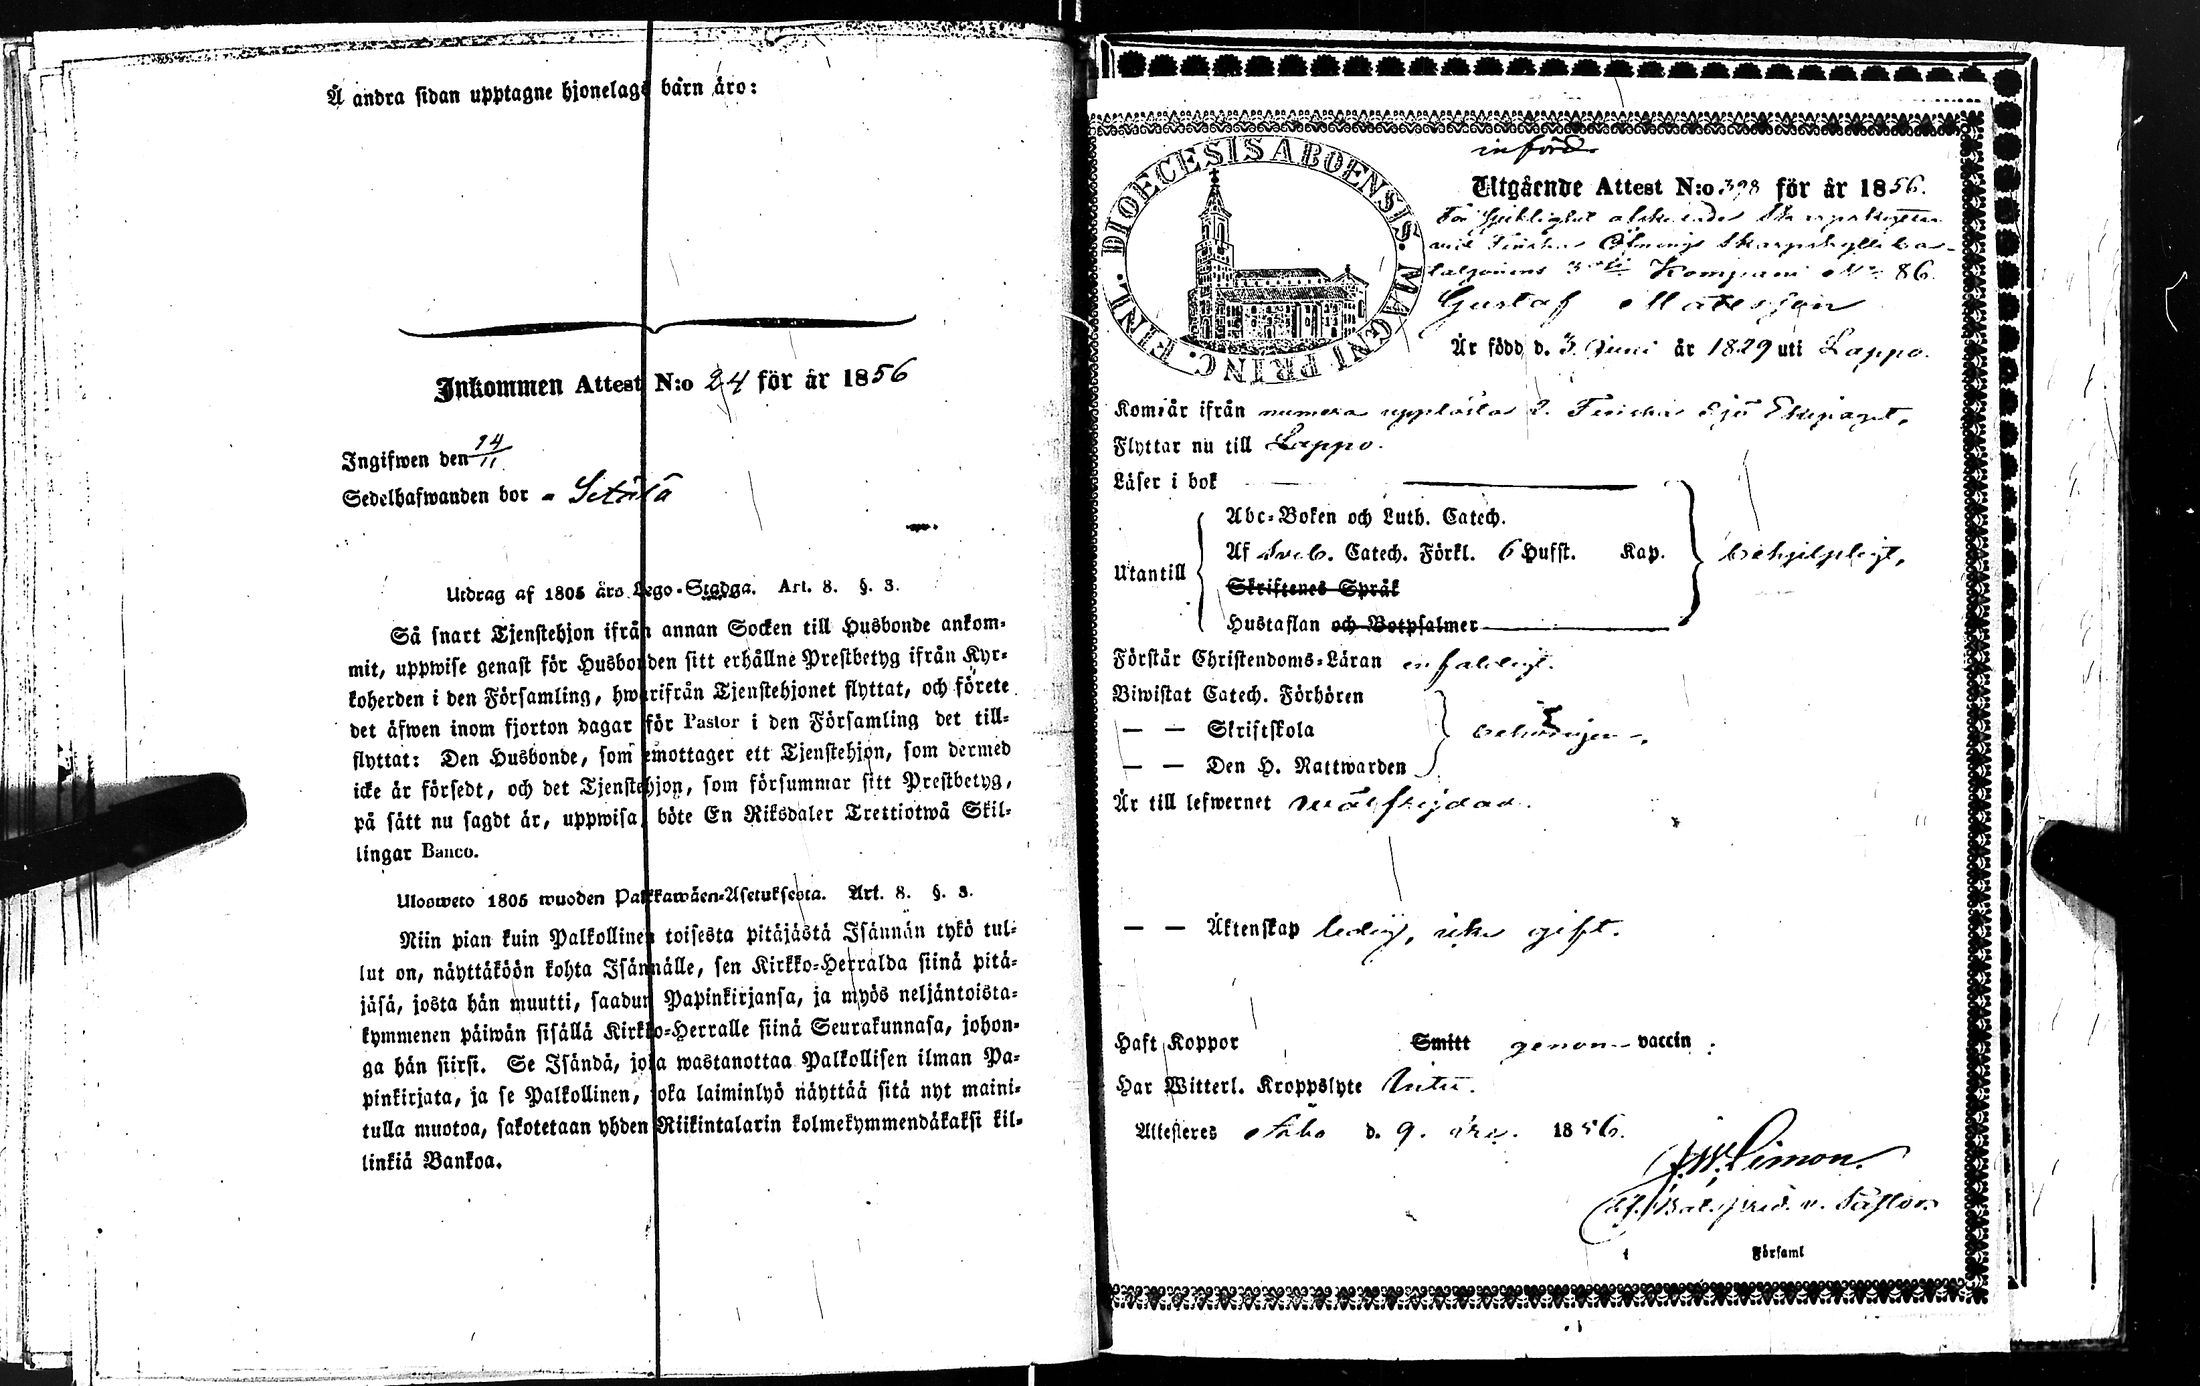 Å andra sidan upptagne hjonelags barn äro:
Inkommen Attest N:o 24 för år 1856
Ingifwen den 14/11
Sedelhafwanden bor a Setälä
Utdrag af 1805 års Lego-Stadga. Art. 8. §. 3.
Så snart Tjenstehjon ifrån annan Socken till Husbonde ankom-
mit, uppwise genast för Husbonden sitt erhållne Prestbetyg ifrån Kyr-
koherden i den Församling, hwarifrån Tjenstehjonet flyttat, och förete
det äfwen inom fjorton dagar för Pastor i den Församling det till-
flyttat: Den Husbonde, som emottager ett Tjenstehjon, som dermed
icke är försedt, och det Tjenstehjon, som försummar sitt Prestbetyg,
på sätt nu sagdt är, uppwisa, böte En Riksdaler Trettiotwå Skil-
lingar Banco.
Ulosweto 1805 wuoden Palkkawäen-Asetuksesta. Art. 8. §. 3.
Niin pian kuin Palkollinen toisesta pitäjästä Isännän tykö tul-
lut on, näyttäköön kohta Isännälle, sen Kirkko-Herralda siinä pitä-
jäsä, josta hän muutti, saadun Papinkirjansa, ja myös neljäntoista-
kymmenen päiwän sisällä Kirkko-Herralle siinä Seurakunnasa, johon-
ga hän siirsi. Se Isändä, joka wastanottaa Palkollisen ilman Pa-
pinkirjata, ja se Palkollinen, joka laiminlyö näyttää sitä nyt maini-
tulla muotoa, sakotetaan yhden Riikintalarin kolmekymmendäkaksi kil-
linkiä Bankoa.
införd
DIOECESIS ABOENSIS. MAGNI PRINC. FINL.
Utgående Attest N:o 398 för år 1856.
För sjuklighet afskedade Skarpskytten
vid Finska Skarpskytte ba-
taljonens 3dje Kompani No 86.
Gustaf Matsson
Är född d. 3 Juni år 1829 uti Lappo.
Komtär ifrån numera upplösta 2. Finska Sjö Ekipaget,
Flyttar nu till Lappo.
Läser i bok
Utantill
Abc-Boken och Luth. Catech.
Af Sveb. Catech. Förkl. 6 Hufst. Kap.
behjelpligt,
Skriftenes Språk
Hustaflan och Botpsalmer
Förstår Christendoms-Läran enfaldigt.
Biwistat Catech. Förhören
— — Skriftskola
behörigen
— — Den H. Nattwarden
Är till lefwernet wälfrejdad.
— — Äktenskap ledig, icke gift.
Haft Koppor Smitt genom vaccin
Har Witterl. Kroppslyte
Attesteres Åbo d. 9. 1856.
J.W. Simon.
v. Pastor.
i Församl